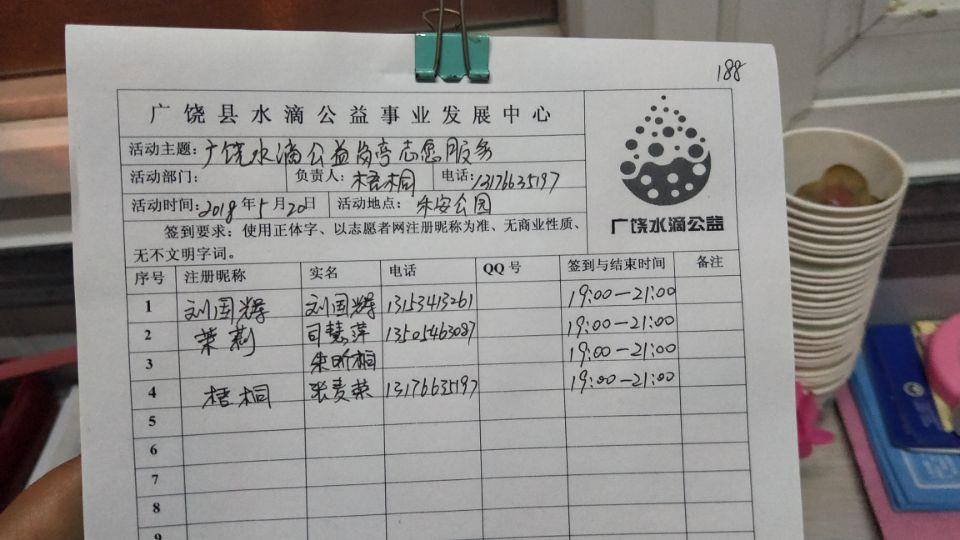 188
广饶县水滴公益事业发展中心
活动主题：广饶水滴公益岗亭志愿服务
活动部门： 负责人：梧桐 电话：13176635197
活动时间：2018年5月20日 活动地点：乐安公园
广饶水滴公益
签到要求：使用正体字、以志愿者网注册昵称为准、无商业性质、
无不文明字词。
序号 注册昵称 实名 电话 QQ号 签到与结束时间 备注
1 刘国辉 刘国辉 13153413261 19:00—21:00
2 茉莉 司慧萍 13505463087 19:00—21:00
3 朱昕桐 19:00—21:00
4 梧桐 张麦荣 13176635197 19:00—21:00
5
6
7
8
9